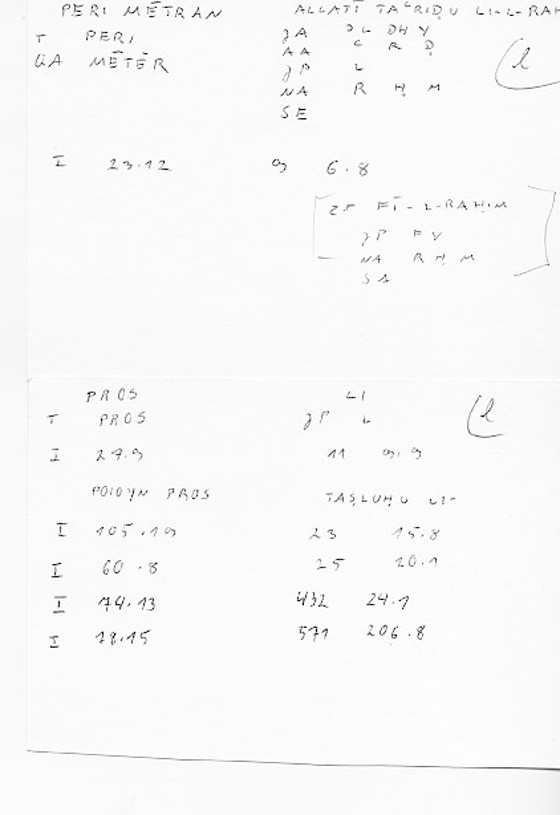 PERI MĒTRAN ALLATĪ TAʿRIḌU LI-L-RAH
T PERI ȷA ꜢL DHY
AA ʿ R Ḍ
ÜA MĒTĒR ȷP L
NA R Ḥ M
SE
l
I 23.12 9 6.8
25 FĪ-L-RAḤIM
ȷP FY
NA R Ḥ M
SA
PROS LI
T PROS ȷP L
l
I 27.9 11 9.9
POIOYN PROS TAṢLUḤU LI-
I 105.19 23 15.8
I 60.8 25 20.1
I 74.13 432 24.1
I 78.15 571 206.8